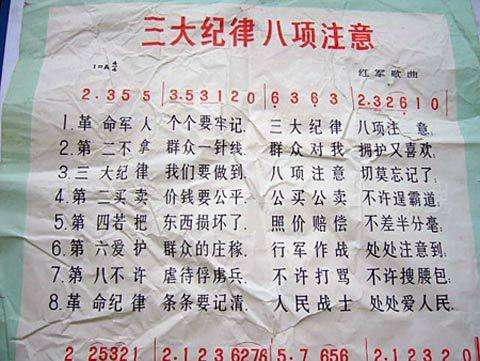 三大纪律八项注意
红军歌曲
2·3 5 5 3·5 3 1 2 0 6 3 6 3 2·3 2 6 1 0
1.革命军人 个个要牢记. 三大纪律 八项注意;
2.第二不拿 群众一针线. 群众对我 拥护又喜欢;
3.三大纪律 我们要做到. 八项注意 切莫忘记了;
4.第二买卖 价钱要公平. 公买公卖 不许逞霸道;
5.第四若把 东西损坏了. 照价赔偿 不差半分毫;
6.第六爱护 群众的庄稼. 行军作战 处处注意到;
7.第八不许 虐待俘虏兵. 不许打骂 不许搜腰包;
8.革命纪律 条条要记清. 人民战士 处处爱人民.
2 25321 2·123 6276 5·7 656 2·123